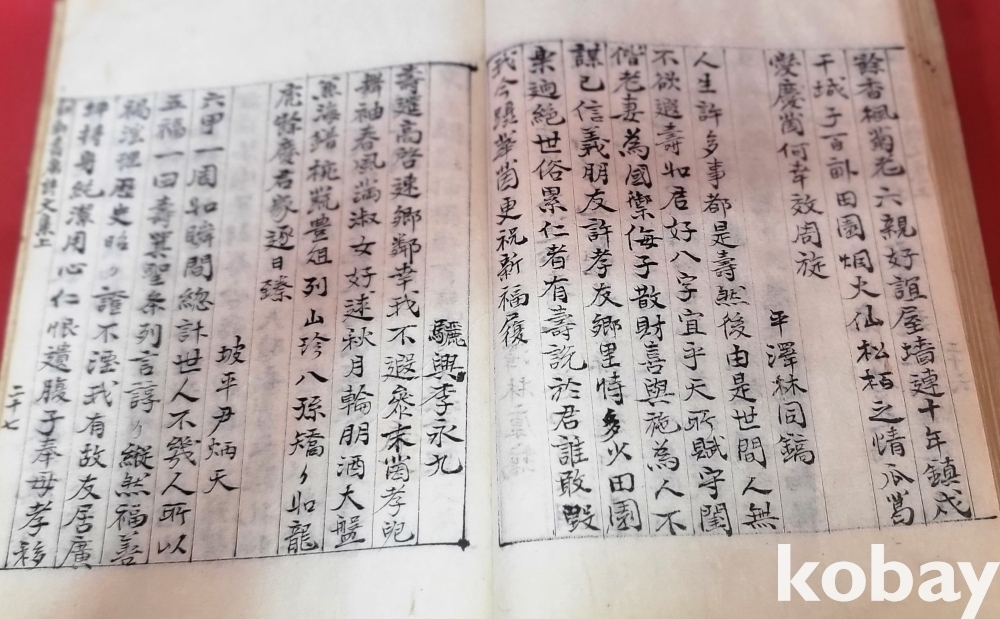 餘香楓菊老六親好誼屋墻連十年鎮戍
干城子百畝田園烟火仙松栢之情瓜葛
慶茵何幸效周旋
平澤林回鎬
人生許多事都是壽然後由是世間人無
不欲遐壽如君好八字宜乎天所賦守閨
偕老妻為國禦侮子散財喜與施為人不
謀己信義朋友許孝友鄉里恃多少田園
樂逈絕世俗累仁者有壽說於君誰敢毀
我今蹺華茵更祝新福履
驪興李永九
壽筵高啓速鄉鄰幸我不遐參末茵孝兒
舞袖春風滿淑女好逑秋月輪朋酒大盤
魚海錯桃瓶豊俎列山珍八孫矯々如龍
虎幣慶君家逐日臻
坡平尹炳天
六甲一周如瞬間總計世人不幾人所以
五福一曰壽冀聖条列言諄々縱然福善
禍淫理歷史昭々證不湮我有故友居廣
坤持身純潔用心仁恨遺腹子奉母孝移
詩文集上
二十七
kobay